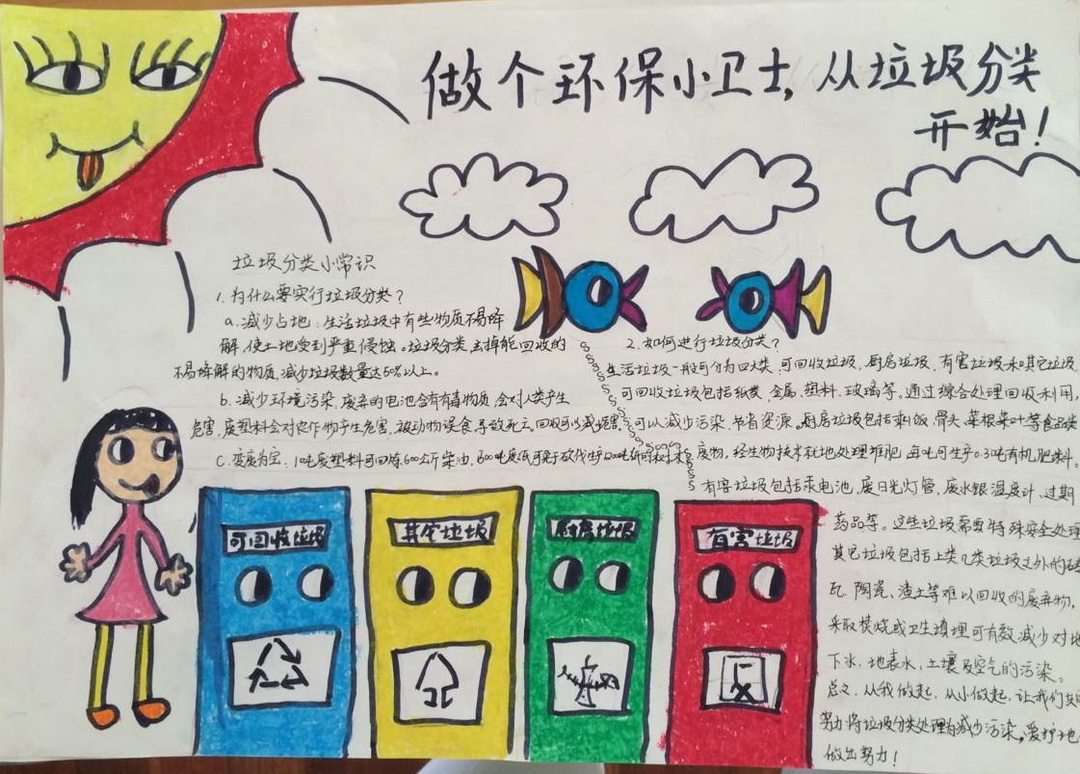 做个环保小卫士，从垃圾分类
开始！
垃圾分类小常识
1.为什么要实行垃圾分类？
a.减少占地：生活垃圾中有些物质不易降
解，使土地受到严重侵蚀。垃圾分类，去掉能回收的
不易降解的物质，减少垃圾数量达50%以上。
b.减少环境污染，废弃的电池含有有毒物质，会对人类产生
危害，废塑料会对农作物产生危害，被动物误食导致死亡。回收可以减
C.变废为宝：1吨废塑料可回炼600公斤柴油，
2.如何进行垃圾分类？
生活垃圾一般可分为四大类，可回收垃圾，厨房垃圾，有害垃圾和其它垃圾
可回收垃圾包括纸类，金属，塑料，玻璃等，通过综合处理回收利用，
可以减少污染，节省资源。厨房垃圾包括剩饭，骨头，菜根菜叶等食品类
废物，经生物技术就地处理堆肥，每吨可生产0.3吨有机肥料。
有害垃圾包括汞电池，废日光灯管，废水银温度计，过期
药品等。这些垃圾需要特殊安全处理
其它垃圾包括上类几类垃圾之外的砖
瓦，陶瓷、渣土等难以回收的废弃物，
采取焚烧或卫生填埋可有效减少对地
下水，地表水，土壤及空气的污染。
总之，从我做起，从小做起，让我们共同
努力将垃圾分类处理为减少污染，爱护地
做出努力！
可回收垃圾
其它垃圾
厨房垃圾
有害垃圾